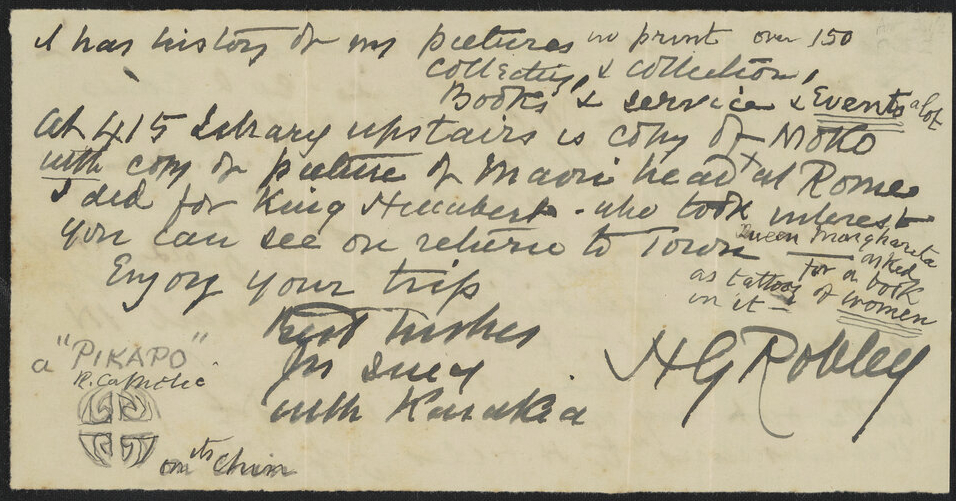 & has history of my pictures in print over 150
collecting, & collection,
Books & service & Events a lot
At 415 Library upstairs is copy of Moko
with copy of picture of Maori head x at Rome
I did for King Humbert - who took interest
you can see on return to Town
Queen Margharita
asked
for a book
as tattoos of women
in it -
Enjoy your trip
Best wishes
Yrs
with Karakia
H G Robley
a "PIKAPO"
R. Catholic
on its chin